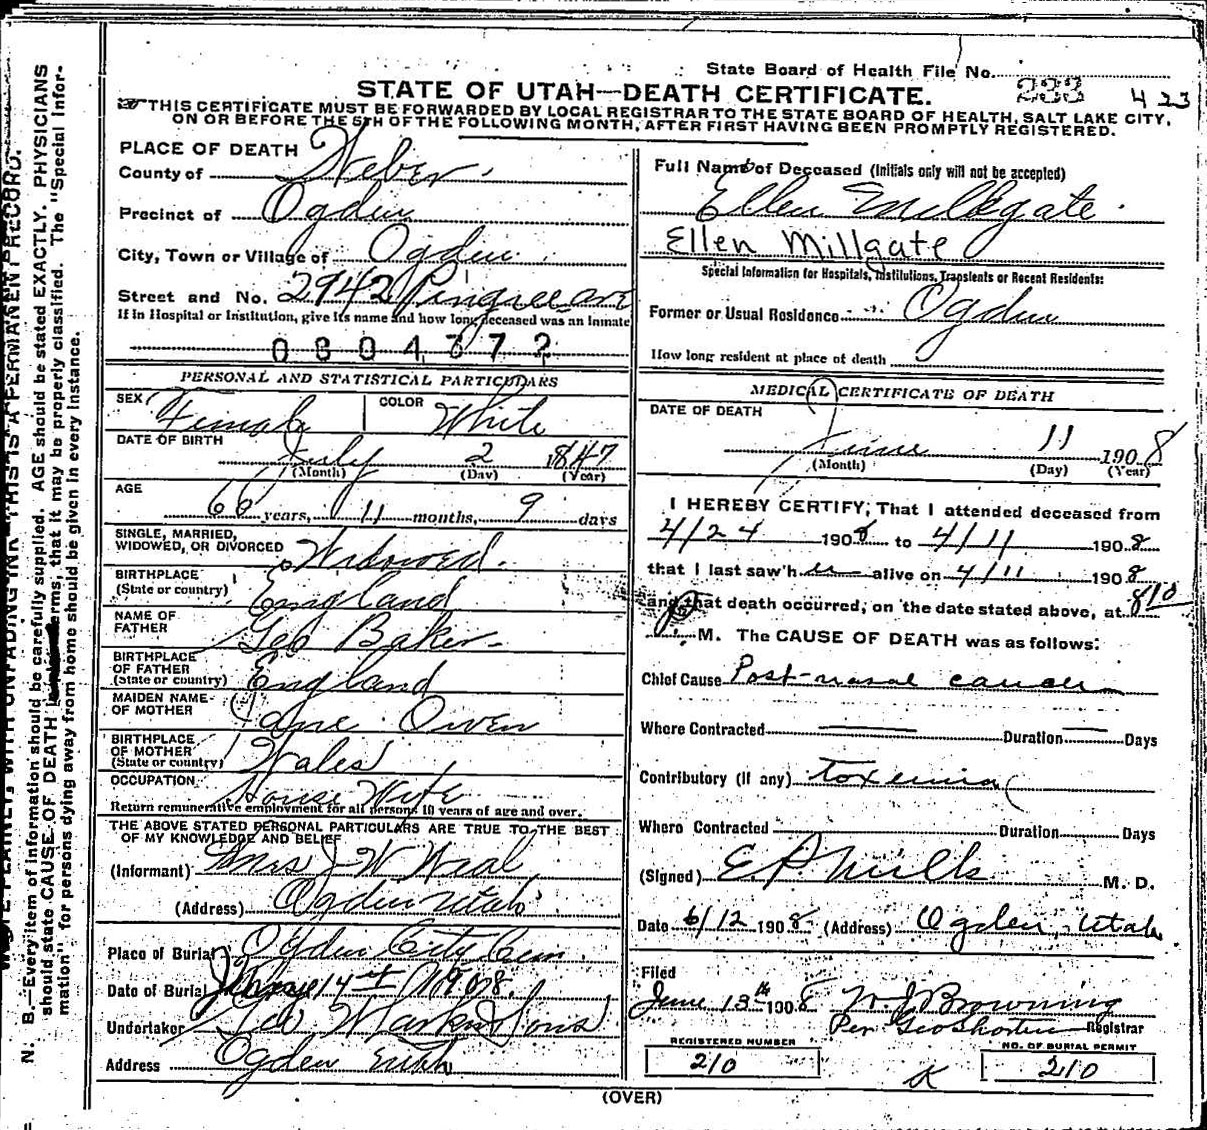 State Board of Health File No. 233 423
STATE OF UTAH—DEATH CERTIFICATE.
THIS CERTIFICATE MUST BE FORWARDED BY LOCAL REGISTRAR TO THE STATE BOARD OF HEALTH, SALT LAKE CITY,
ON OR BEFORE THE 5TH OF THE FOLLOWING MONTH, AFTER FIRST HAVING BEEN PROMPTLY REGISTERED.
PLACE OF DEATH
County of Weber
Precinct of Ogden
City, Town or Village of Ogden
Street and No. 2942 Pingree ave
If in Hospital or Institution, give its name and how long deceased was an inmate
0804372
PERSONAL AND STATISTICAL PARTICULARS
SEX Female COLOR White
DATE OF BIRTH
July 2 1847
(Month) (Day) (Year)
AGE
60 years, 11 months, 9 days
SINGLE, MARRIED,
WIDOWED, OR DIVORCED Widowed.
BIRTHPLACE
(State or country) England
NAME OF
FATHER Geo Baker
BIRTHPLACE
OF FATHER
(State or country) England
MAIDEN NAME
OF MOTHER Jane Owen
BIRTHPLACE
OF MOTHER
(State or country) Wales
OCCUPATION House Wife
Return remunerative employment for all persons 10 years of age and over.
THE ABOVE STATED PERSONAL PARTICULARS ARE TRUE TO THE BEST
OF MY KNOWLEDGE AND BELIEF
(Informant) Mrs J W
(Address) Ogden Utah
Place of Burial Ogden City Cem.
Date of Burial 14th 1908.
Undertaker Sons
Address Ogden Utah
Full Name of Deceased (Initials only will not be accepted)
Ellen Millgate
Ellen Millgate
Special Information for Hospitals, Institutions, Transients or Recent Residents:
Former or Usual Residence Ogden
How long resident at place of death
MEDICAL CERTIFICATE OF DEATH
DATE OF DEATH
June 11 1908
(Month) (Day) (Year)
I HEREBY CERTIFY, That I attended deceased from
4/24 1908 to 4/11 1908
that I last saw h er alive on 4/11 1908
and that death occurred, on the date stated above, at 810
P. M. The CAUSE OF DEATH was as follows:
Chief Cause Post-nasal cancer
Where Contracted Duration Days
Contributory (if any) Toxemia
Where Contracted Duration Days
(Signed) E. P. Mills M. D.
Date 6/12 1908 (Address) Ogden, Utah
Filed
June 13th 1908 W J Browning
Per Geo Shorten Registrar
REGISTERED NUMBER NO. OF BURIAL PERMIT
210 210
(OVER)
N. B.—Every item of information should be carefully supplied. AGE should be stated EXACTLY. PHYSICIANS
should state CAUSE OF DEATH in terms, that it may be properly classified. The "Special Infor-
mation" for persons dying away from home should be given in every instance.
WITH UNFADING INK—THIS IS A PERMANENT RECORD.